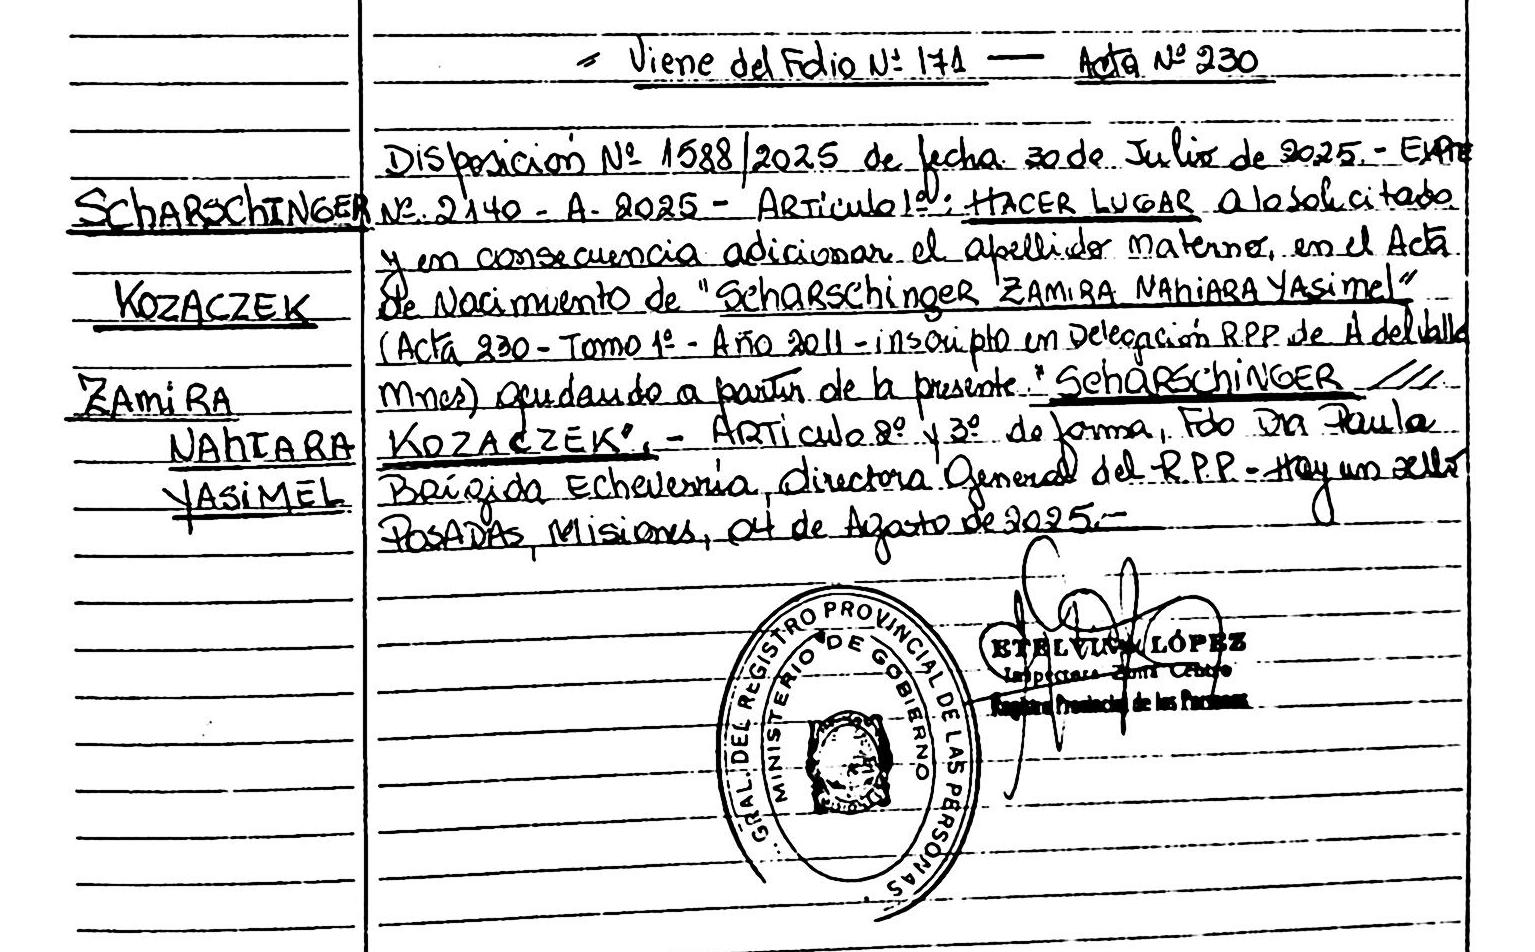 Viene del Folio Nº 171 — Acta Nº 230
Disposición Nº 1588/2025 de fecha 30 de Julio de 2025.- EXPTE
SCHARSCHINGER
Nº 2140 - A - 2025 - ARTiculo 1º: HACER LUGAR a lo solicitado
y en consecuencia adicionar el apellido materno, en el Acta
KOZACZEK
de Nacimiento de "ScHARSCHingeR ZAMiRA NAHiARA YASimel"
(Acta 230 - Tomo 1º - Año 2011 - inscripto en Delegación R.P.P. de A del Valle
ZAMiRA
Mnes) quedando a partir de la presente "ScHARSCHiNGER ///
NAHIARA
KOZACZEK".- ARTiculo 2º y 3º de forma, Fdo Dra Paula
YASiMEL
Brígida Echeverría, directora General del R.P.P.- Hay un sello
POSADAS, Misiones, 04 de Agosto de 2025.-
GRAL. DEL REGISTRO PROVINCIAL DE LAS PERSONAS
MINISTERIO DE GOBIERNO
ETELVINA LÓPEZ
Inspectora Zona Centro
Registro Provincial de las Personas